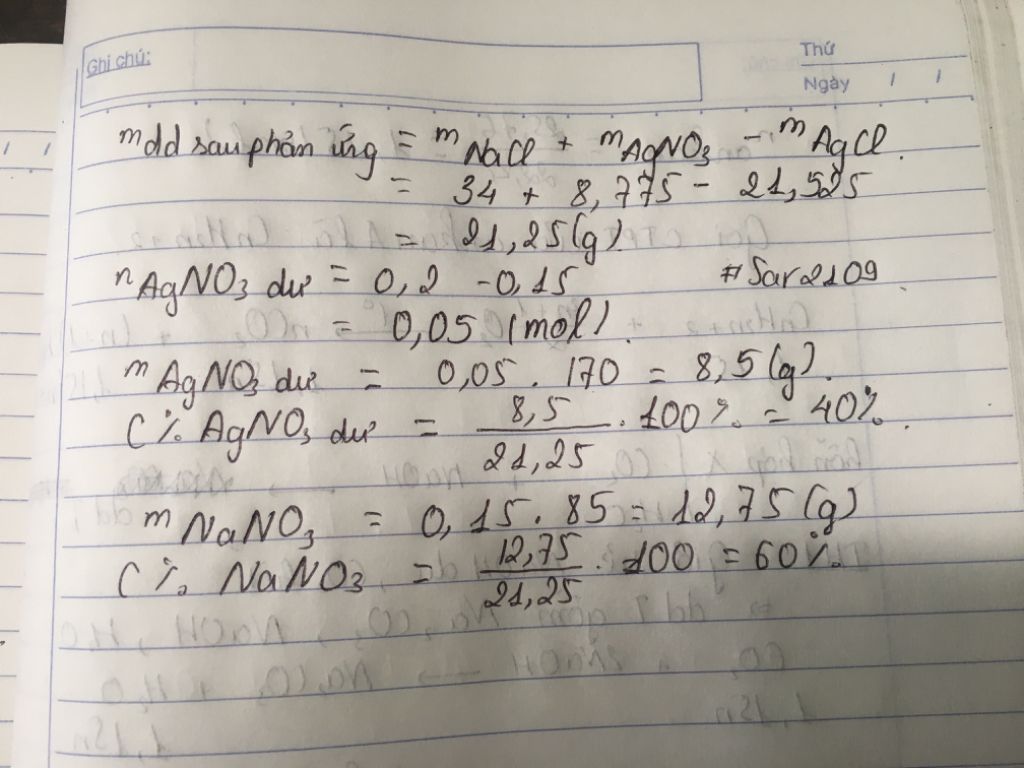 Ghi chú:
Thứ
Ngày / /
mdd sau phản ứng = mNaCl + mAgNO3 - mAgCl.
= 34 + 8,775 - 21,525
= 21,25(g).
nAgNO3 dư = 0,2 - 0,15 #Sar2109
= 0,05 (mol).
mAgNO3 dư = 0,05 . 170 = 8,5(g).
C% AgNO3 dư = 8,5/21,25 . 100% = 40%.
mNaNO3 = 0,15 . 85 = 12,75(g)
C% NaNO3 = 12,75/21,25 . 100 = 60%